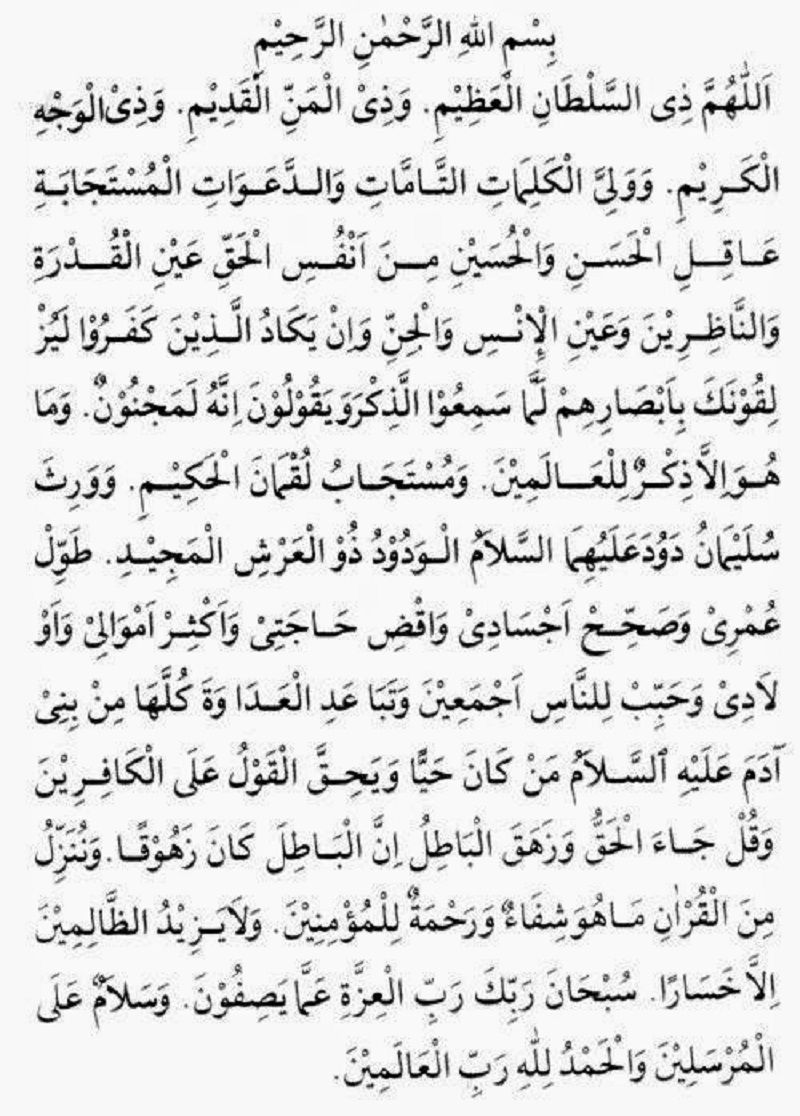 بِسْمِ اللهِ الرَّحْمٰنِ الرَّحِيْمِ
اَللّٰهُمَّ ذِى السَّلْطَانِ الْعَظِيْمِ. وَذِىْ الْمَنِّ الْقَدِيْمِ. وَذِىْ الْوَجْهِ
الْكَرِيْمِ. وَوَلِيَّ الْكَلِمَاتِ التَّامَّاتِ وَالدَّعَوَاتِ الْمُسْتَجَابَةِ
عَاقِلِ الْحَسَنِ وَالْحُسَيْنِ مِنَ اَنْفُسِ الْحَقِّ عَيْنِ الْقُدْرَةِ
وَالنَّاظِرِيْنَ وَعَيْنِ الْاِنْسِ وَالْجِنِّ وَاِنْ يَكَادُ الَّذِيْنَ كَفَرُوْا لَيُزْ
لِقُوْنَكَ بِاَبْصَارِهِمْ لَمَّا سَمِعُوْا الذِّكْرَ وَيَقُوْلُوْنَ اِنَّهُ لَمَجْنُوْنٌ. وَمَا
هُوَ اِلاَّ ذِكْرٌ لِلْعَالَمِيْنَ. وَمُسْتَجَابُ لُقْمَانَ الْحَكِيْمِ. وَوَرِثَ
سُلَيْمَانُ دَوُدَ عَلَيْهِمَا السَّلاَمُ الْوَدُوْدُ ذُوْ الْعَرْشِ الْمَجِيْدِ. طَوِّلْ
عُمْرِىْ وَصَحِّحْ اَجْسَادِىْ وَاقْضِ حَاجَتِىْ وَاَكْثِرْ اَمْوَالِىْ وَاَوْ
لَادِىْ وَحَبِّبْ لِلنَّاسِ اَجْمَعِيْنَ وَتَبَا عَدِ الْعَدَا وَةَ كُلَّهَا مِنْ بَنِىْ
آدَمَ عَلَيْهِ السَّلاَمُ مَنْ كَانَ حَيًّا وَيَحِقَّ الْقَوْلُ عَلَى الْكَافِرِيْنَ
وَقُلْ جَاءَ الْحَقُّ وَزَهَقَ الْبَاطِلُ اِنَّ الْبَاطِلَ كَانَ زَهُوْقًا. وَنُنَزِّلُ
مِنَ الْقُرْاٰنِ مَاهُوَ شِفَاءٌ وَرَحْمَةٌ لِلْمُؤْمِنِيْنَ. وَلاَيَزِيْدُ الظَّالِمِيْنَ
اِلاَّ خَسَارًا. سُبْحَانَ رَبِّكَ رَبِّ الْعِزَّةِ عَمَّا يَصِفُوْنَ. وَسَلاَمٌ عَلَى
الْمُرْسَلِيْنَ وَالْحَمْدُ لِلّٰهِ رَبِّ الْعَالَمِيْنَ.